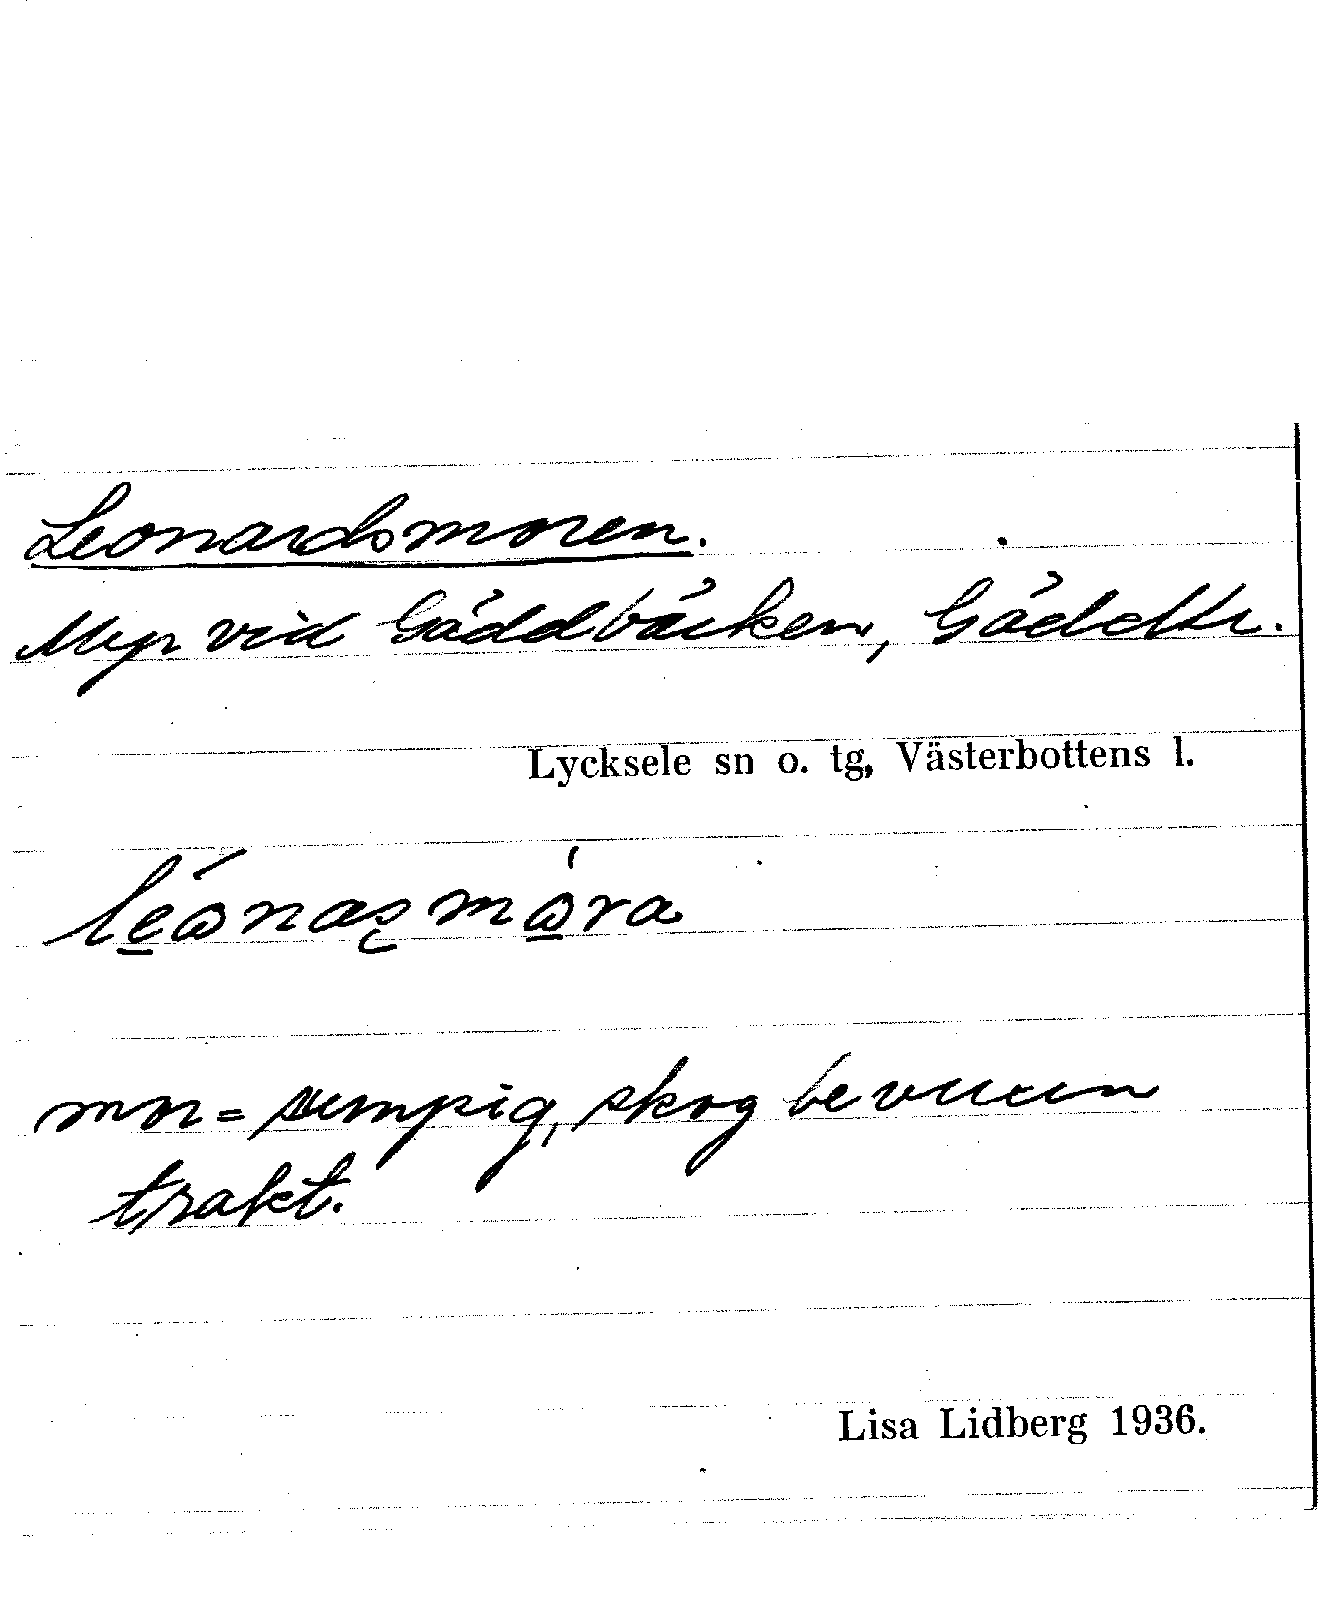 Leonardsmoren.
Myr vid Gäddbäcken, Gäddtr.
Lycksele sn o. tg, Västerbottens l.
mor = sumpig, skog bevuxen
trakt.
Lisa Lidberg 1936.